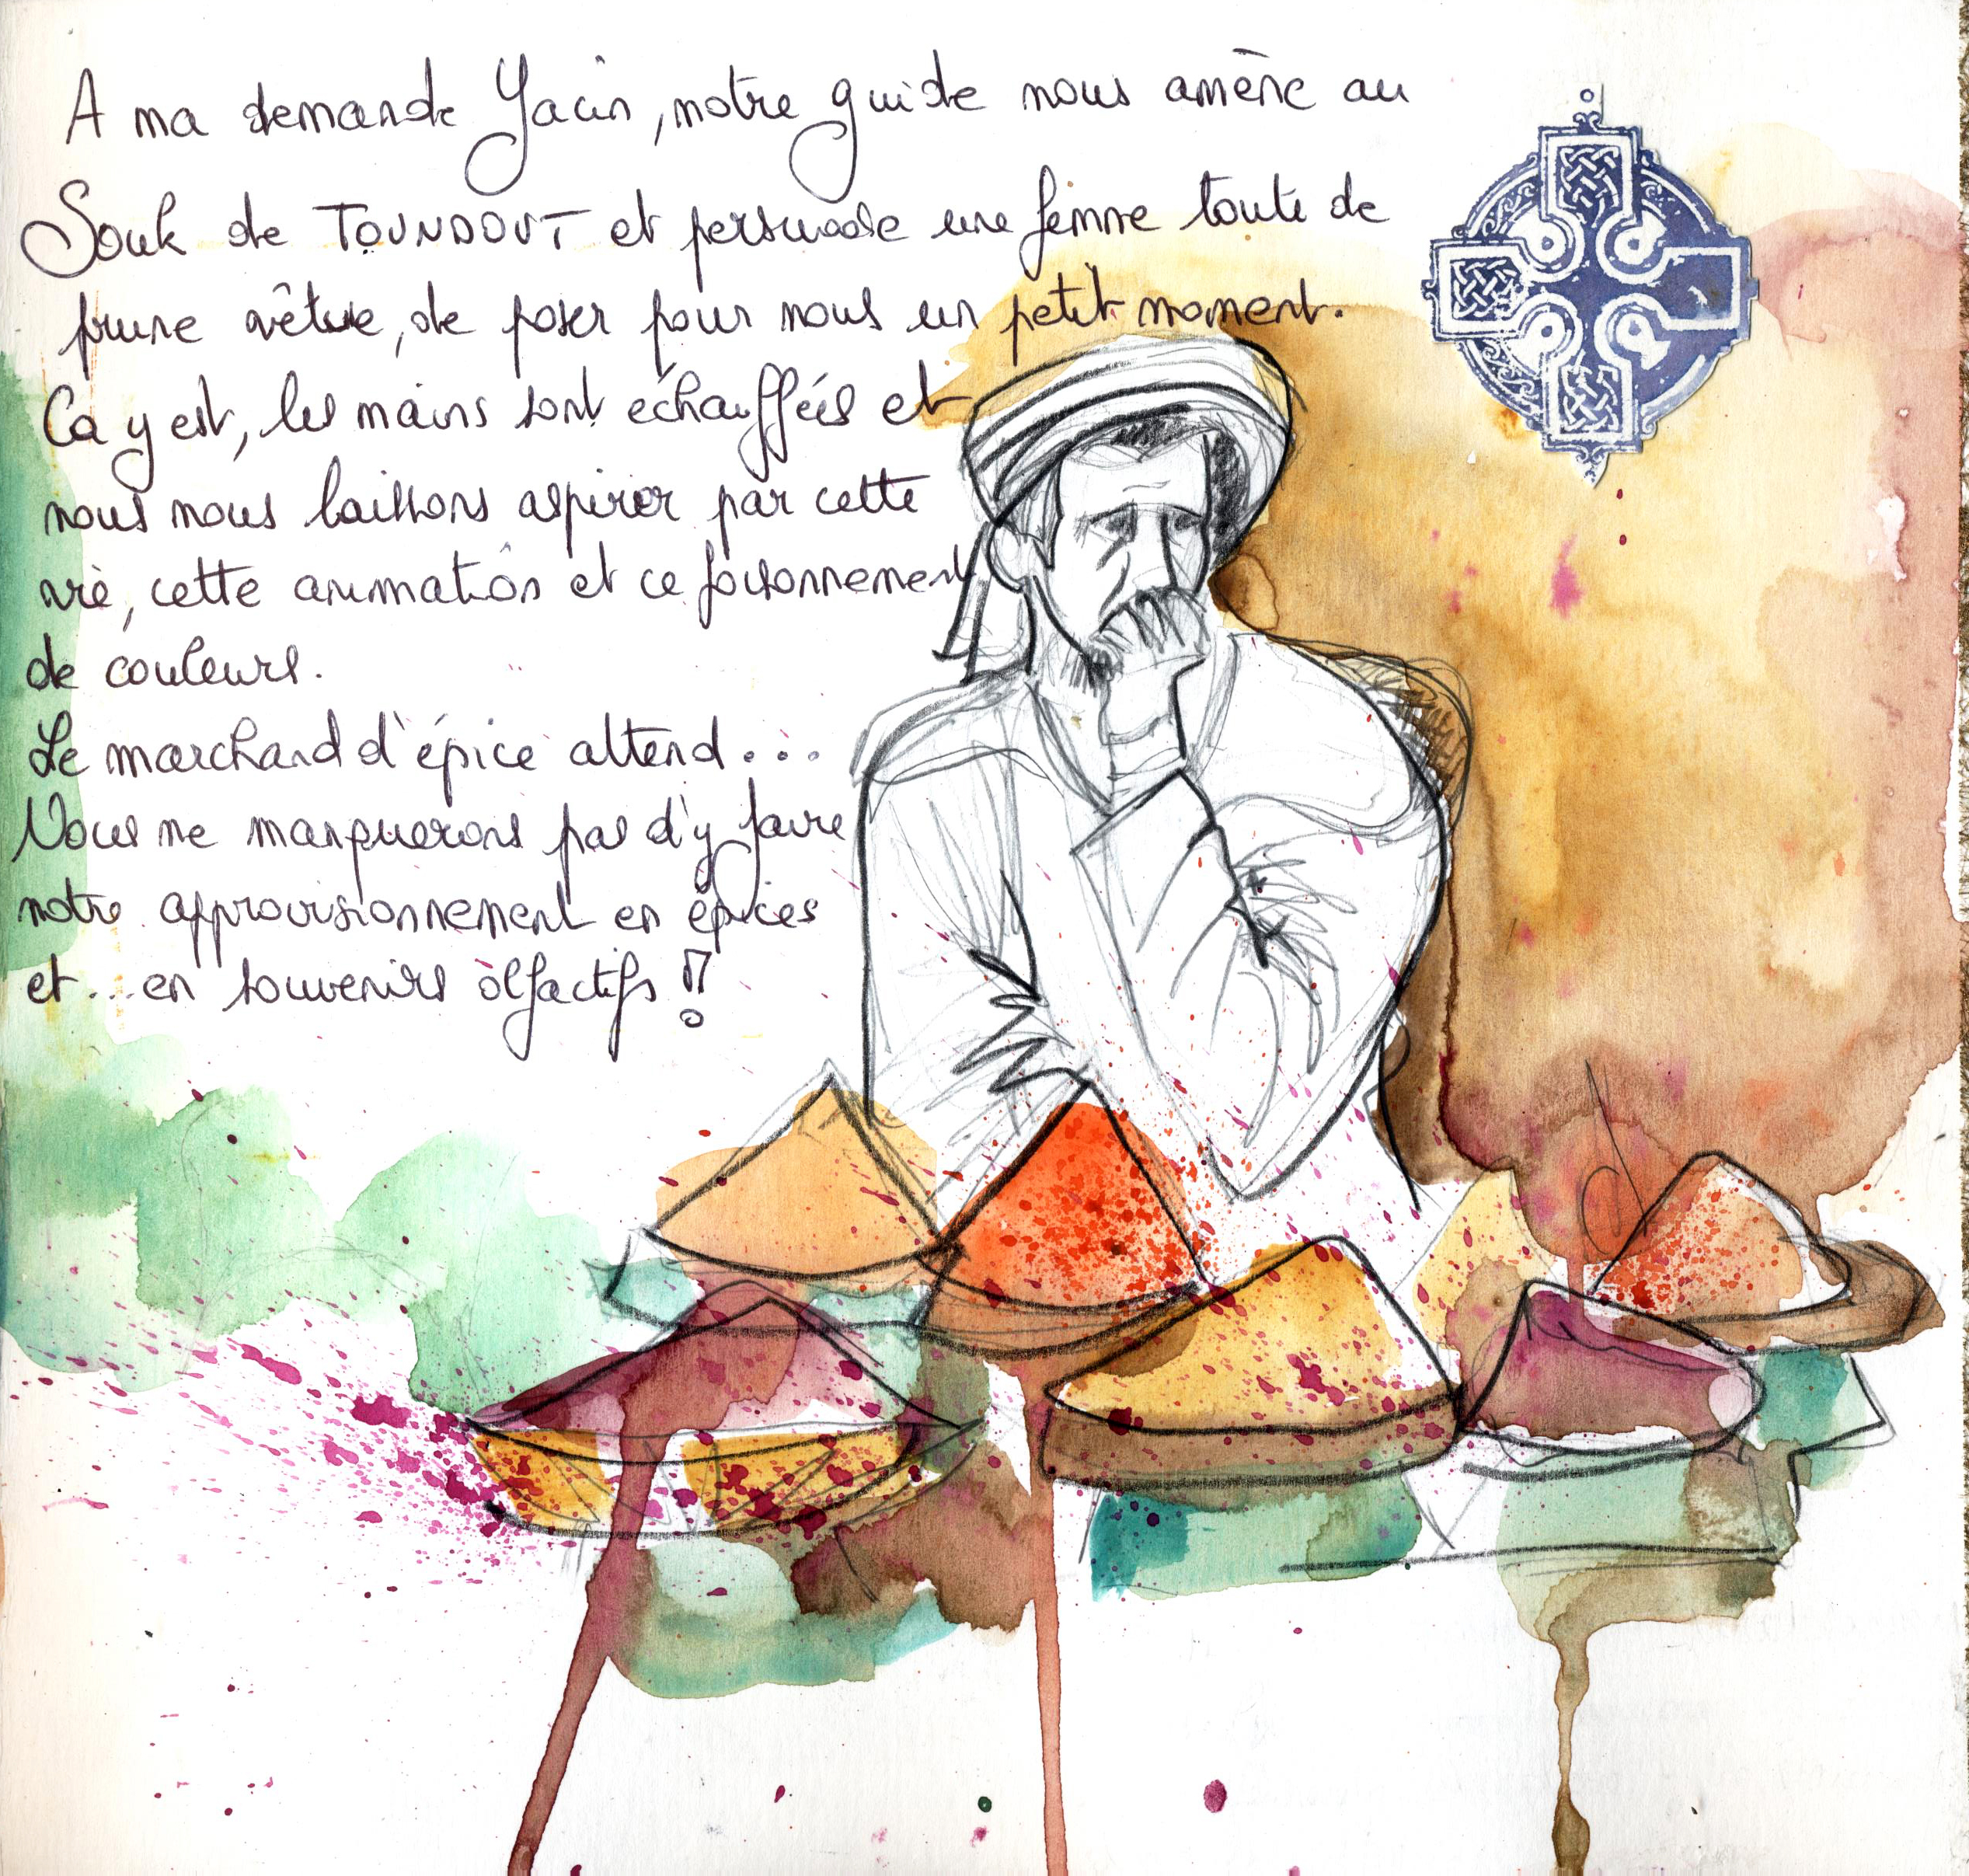 A ma demande Yacin, notre guide nous amène au
Souk de TOUNDOUT et persuade une femme toute de
prune vêtue, de poser pour nous un petit moment.
Ca y est, les mains sont échauffées et
nous nous laissons aspirer par cette
vie, cette animation et ce foisonnement
de couleurs.
Le marchand d'épice attend...
Nous ne manquerons pas d'y faire
notre approvisionnement en épices
et...en souvenirs olfactifs !